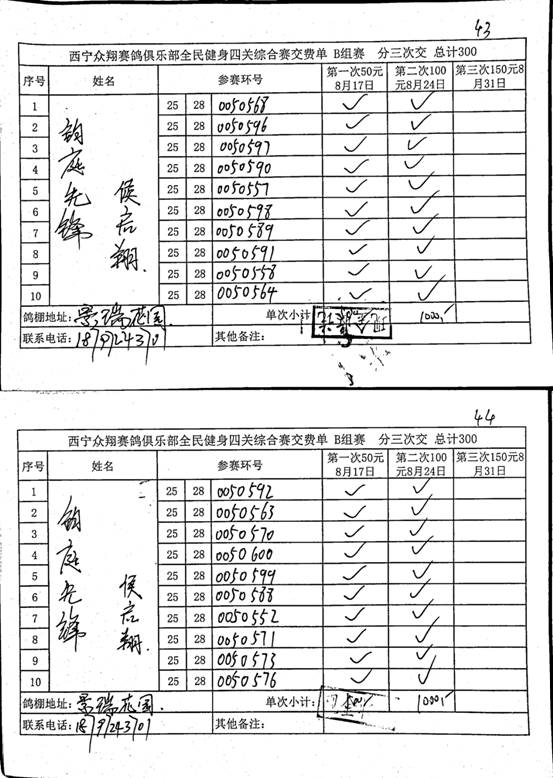 43
西宁众翔赛鸽俱乐部全民健身四关综合赛交费单 B组赛 分三次交 总计300
序号 姓名 参赛环号 第一次50元8月17日 第二次100元8月24日 第三次150元8月31日
1 25 28 0050568 ✓ ✓
2 25 28 0050596 ✓ ✓
3 25 28 0050597 ✓ ✓
4 25 28 0050590 ✓ ✓
5 25 28 0050557 ✓ ✓
6 25 28 0050598 ✓ ✓
7 25 28 0050589 ✓ ✓
8 25 28 0050591 ✓ ✓
9 25 28 0050558 ✓ ✓
10 25 28 0050564 ✓ ✓
庭先锋 侯启翔
鸽棚地址: 景瑞花园 单次小计: 1000
联系电话: 其他备注:
44
西宁众翔赛鸽俱乐部全民健身四关综合赛交费单 B组赛 分三次交 总计300
序号 姓名 参赛环号 第一次50元8月17日 第二次100元8月24日 第三次150元8月31日
1 25 28 0050592 ✓ ✓
2 25 28 0050563 ✓ ✓
3 25 28 0050570 ✓ ✓
4 25 28 0050600 ✓ ✓
5 25 28 0050599 ✓ ✓
6 25 28 0050588 ✓ ✓
7 25 28 0050552 ✓ ✓
8 25 28 0050571 ✓ ✓
9 25 28 0050573 ✓ ✓
10 25 28 0050576 ✓ ✓
庭先锋 侯启翔
鸽棚地址: 景瑞花园 单次小计: 1000
联系电话: 其他备注: